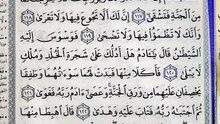 مِنَ ٱلْجَنَّةِ فَتَشْقَىٰٓ ١١٧ إِنَّ لَكَ أَلَّا تَجُوعَ فِيهَا وَلَا تَعْرَىٰ
١١٨ وَأَنَّكَ لَا تَظْمَؤُا۟ فِيهَا وَلَا تَضْحَىٰ ١١٩ فَوَسْوَسَ إِلَيْهِ
ٱلشَّيْطَٰنُ قَالَ يَٰٓـَٔادَمُ هَلْ أَدُلُّكَ عَلَىٰ شَجَرَةِ ٱلْخُلْدِ وَمُلْكٍ لَّا
يَبْلَىٰ ١٢٠ فَأَكَلَا مِنْهَا فَبَدَتْ لَهُمَا سَوْءَٰتُهُمَا وَطَفِقَا
يَخْصِفَانِ عَلَيْهِمَا مِن وَرَقِ ٱلْجَنَّةِ وَعَصَىٰٓ ءَادَمُ رَبَّهُۥ فَغَوَىٰ ١٢١
ثُمَّ ٱجْتَبَٰهُ رَبُّهُۥ فَتَابَ عَلَيْهِ وَهَدَىٰ ١٢٢ قَالَ ٱهْبِطَا مِنْهَا